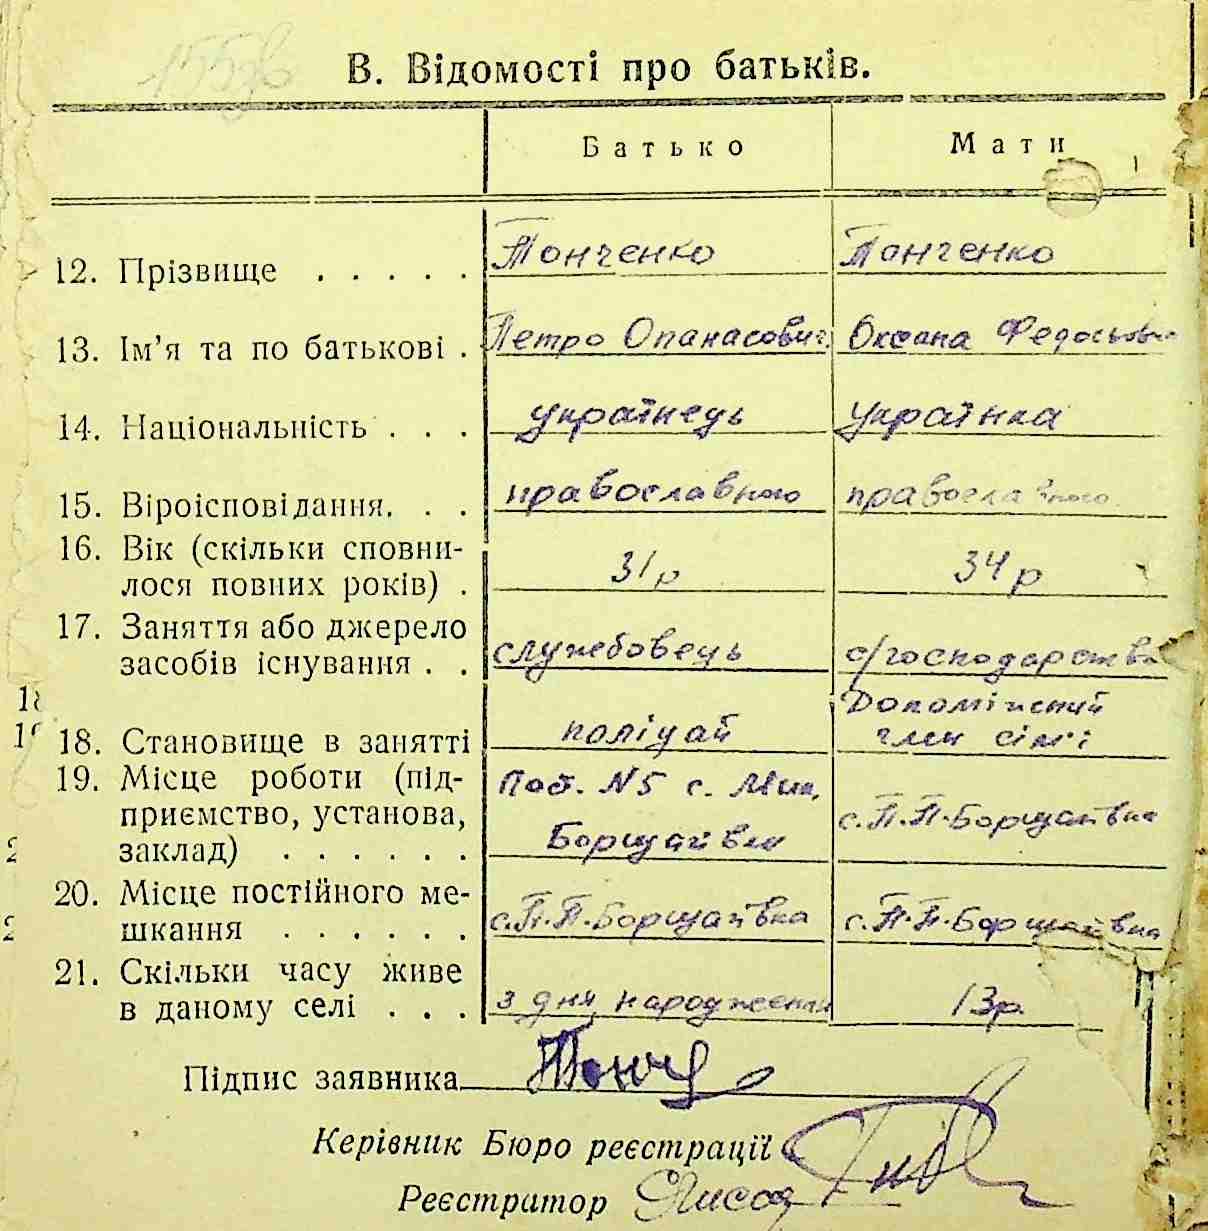 В. Відомості про батьків.
Батько Мати
12. Прізвище . . . . . Тонченко Тонченко
13. Ім'я та по батькові . Петро Опанасович Оксана Федосьовна
14. Національність . . . українець українка
15. Віроісповідання. . . православного православного
16. Вік (скільки сповни-
лося повних років) . 31р 34р
17. Заняття або джерело
засобів існування . . службовець с/господарства
Допоміжний
18. Становище в занятті поліцай член сім'ї
19. Місце роботи (під- Поб. N5 с. Мик.
приємство, установа, с.П.П.Борщагівка
заклад) . . . . . . Борщагівки
20. Місце постійного ме-
шкання . . . . . . с.П.П.Борщагівка с.П.П.Борщагівка
21. Скільки часу живе
в даному селі . . . з дня народження 13р.
Підпис заявника Тонч
Керівник Бюро реєстрації
Реєстратор